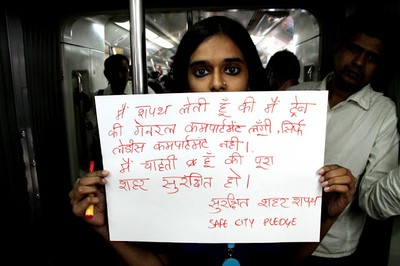 मैं शपथ लेती हूँ की मैं ट्रेन
की जेनरल कमपार्टमेंट लूँगी, सिर्फ
लेडीस कमपार्टमेंट नहीं।
मैं चाहती हूँ की पूरा
शहर सुरक्षित हो।
सुरक्षित शहर शपथ
SAFE CITY PLEDGE